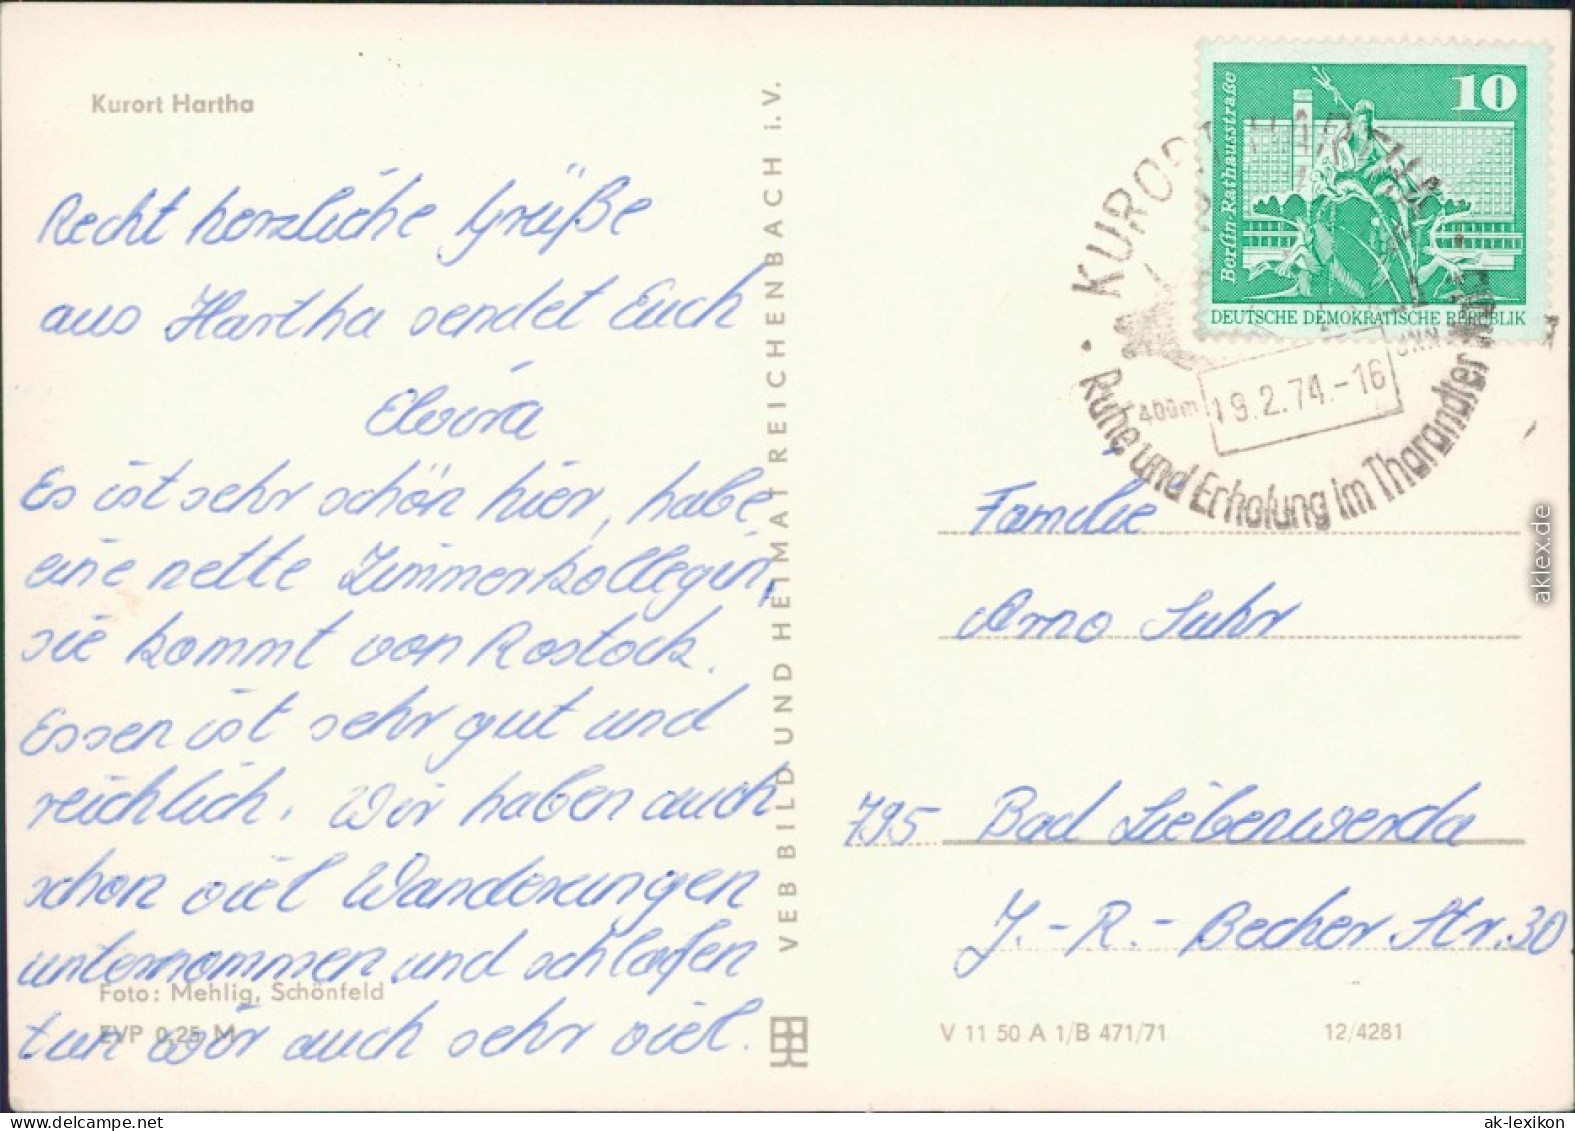 Kurort Hartha
Recht herzliche Grüße
aus Hartha sendet Euch
Elvira
Es ist sehr schön hier, habe
eine nette Zimmerkollegin,
sie kommt von Rostock.
Essen ist sehr gut und
reichlich. Wir haben auch
schon viel Wanderungen
unternommen und schlafen
tun wir auch sehr viel.
Foto: Mehlig, Schönfeld
EVP 0,25 M
VEB BILD UND HEIMAT REICHENBACH i. V.
10
Berlin-Rathausstraße
DEUTSCHE DEMOKRATISCHE REPUBLIK
KURORT HARTHA
400m
19.2.74.-16
Ruhe und Erholung im Tharandter
Familie
Arno Suhr
795 Bad Liebenwerda
J.-R.-Becher Str. 30
V 11 50 A 1/B 471/71
12/4281
aklex.de
ak-lexikon.com